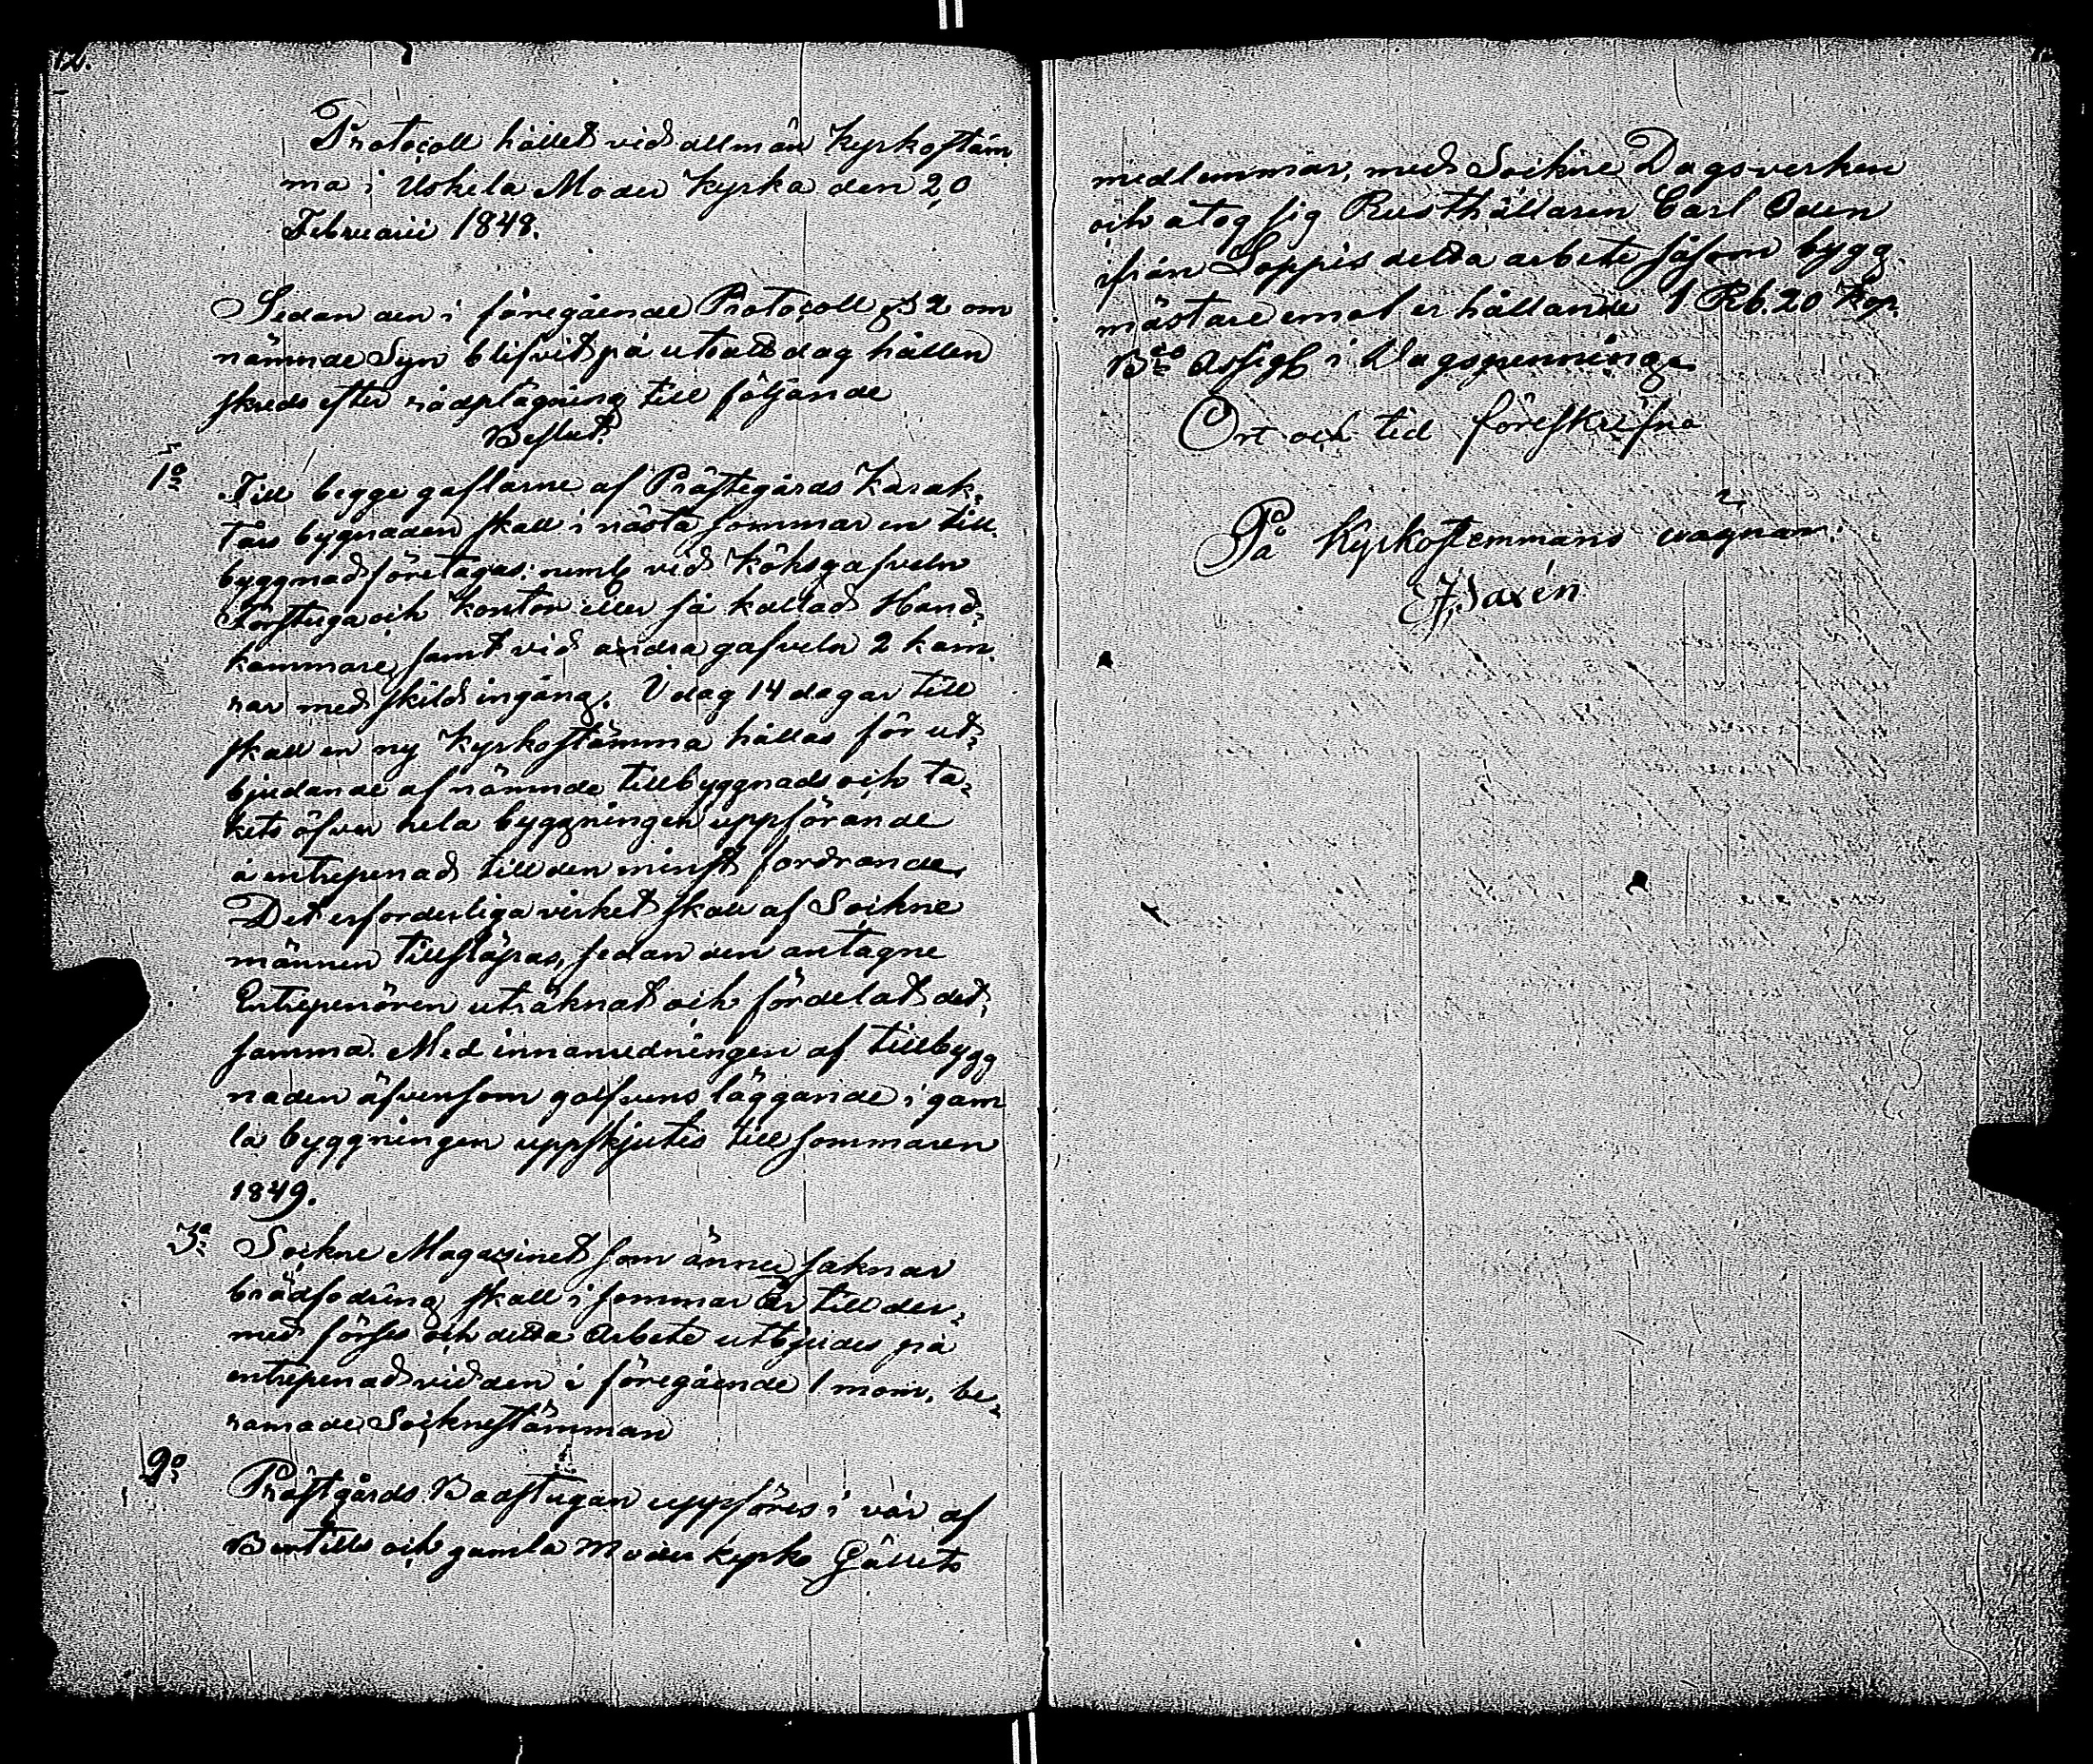 Protocoll hållet vid allmän Kyrkostäm
ma i Uskela Moder Kyrka den 20
Februarii 1848.
Sedan den i föregående Protocoll § 2 om
nämnde Syn blifvit på utsatt dag hållen
skreds efter rådplägning till följande
Beslut:
1o Till begge gaflarne af Prästegårds Karak-
tärs bygnaden skall i nästa sommar en till-
byggnad företagas: neml. vid Köksgafveln
Förstuga och Kontor eller så kallad Hand-
kammare, samt vid andra gafveln 2 kam-
rar med skild ingång. I dag 14 dagar till
skall en ny Kyrkostämma hållas för ut-
bjudande af nämnde tillbyggnads och ta-
kets öfver hela byggningen uppförande
å entrepenad till den minst fordrande.
Det erforderliga virket skall af Sockne
männen tillskaffas, sedan den antagne
Entrepenören uträknat och fördelat det-
samma. Med innanredningen af tillbygg
naden äfvensom golfvens läggande i gam
la byggningen uppskjutes till sommaren
1849.
3o Sockne Magazinet som ännu saknar
brädfodring skall i sommar år till der-
med förses och detta Arbete utbjudes på
entrepenad vid den i föregående 1 mom. be-
ramade Socknestämman
2o Prästgårds Badstugan uppföres i vår af
Bertills och gamla Moderkyrko Gällets
medlemmar, med Sockne Dagsverken
och åtog sig Rusthållaren Carl Oden
ifrån Loppis detta arbete såsom bygg-
mästare emot erhållande 1 Rb. 20 Kop.
Bco Assign i Dagspenninge.
Ort och tid föreskrifne
På Kyrkostemmans vägnar:
FJSaxén